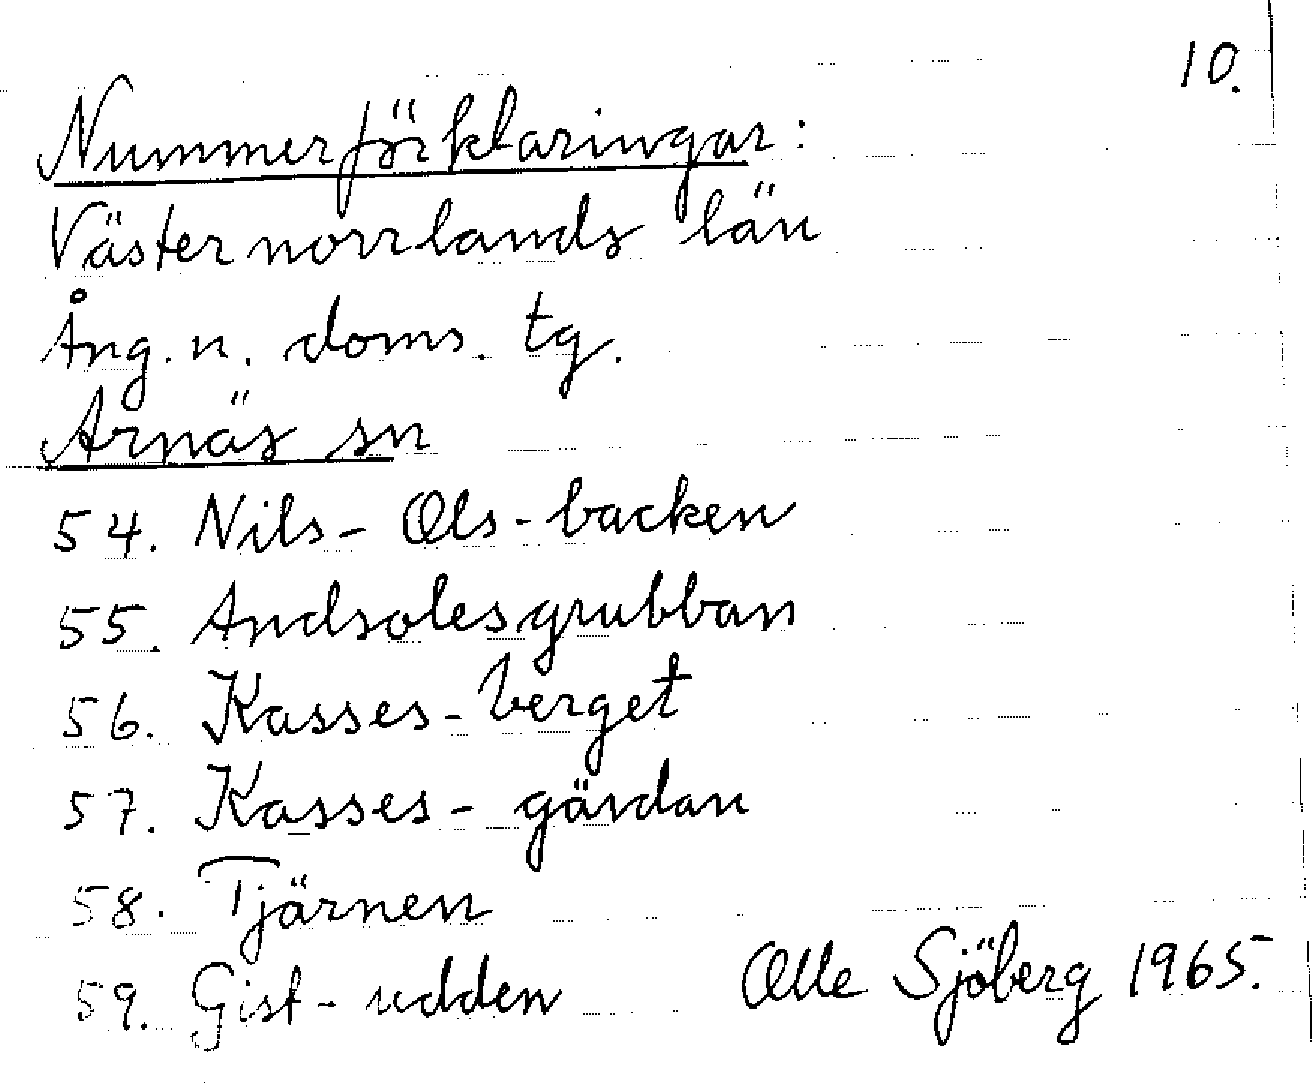 10.
Nummerförklaringar:
Västernorrlands län
Ång. n. doms. tg.
Arnäs sn
54. Nils-Ols-backen
55. Andsolesgrubban
56. Kasses-berget
57. Kasses-gärdan
58. Tjärnen
59. Gist-udden
Olle Sjöberg 1965.